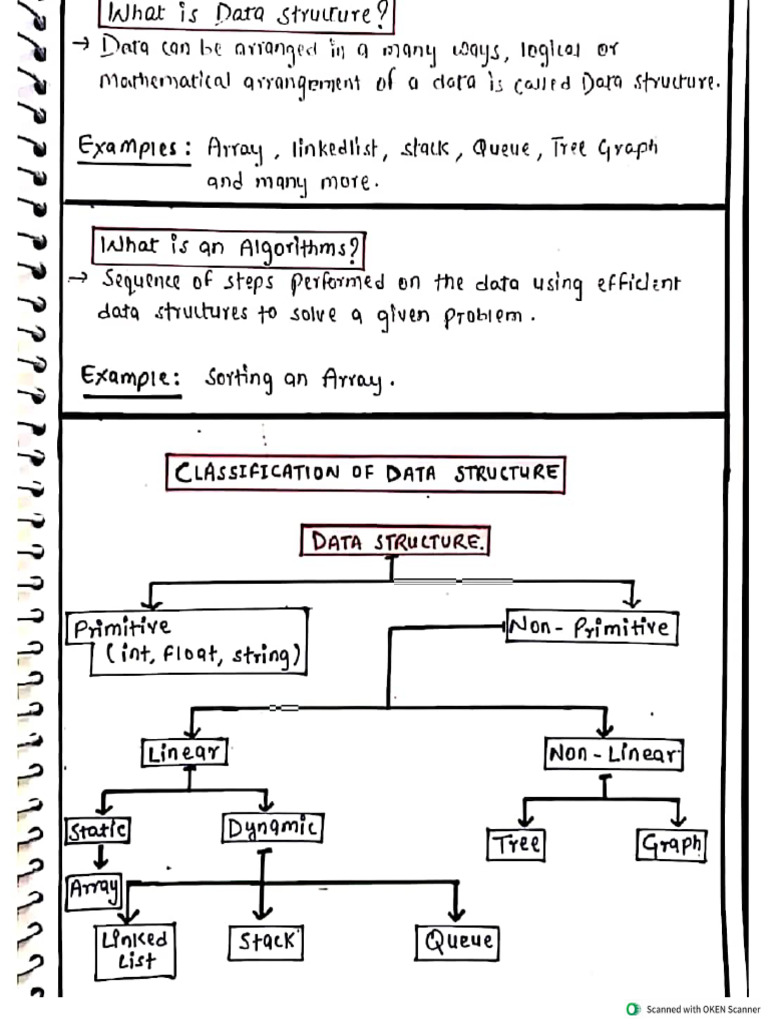 What is Data structure?
→ Data can be arranged in a many ways, logical or
mathematical arrangement of a data is called Data structure.
Examples: Array, linkedlist, stack, Queue, Tree Graph
and many more.
What is an Algorithms?
→ Sequence of steps performed on the data using efficient
data structures to solve a given problem.
Example: Sorting an Array.
CLASSIFICATION OF DATA STRUCTURE
DATA STRUCTURE.
Primitive
(int, float, string)
Non-Primitive
Linear
Non-Linear
Static
Dynamic
Tree
Graph
Array
Linked
List
Stack
Queue
Scanned with OKEN Scanner